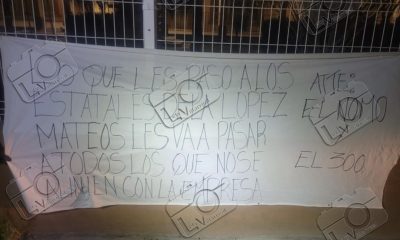 QUE LES PASO A LOS
ESTATALES DE LA LOPEZ
MATEOS LES VA A PASAR
A TODOS LOS QUE NO SE
ALINIEN CON LA EMPRESA
ATTE:
EL MOMO
EL 300